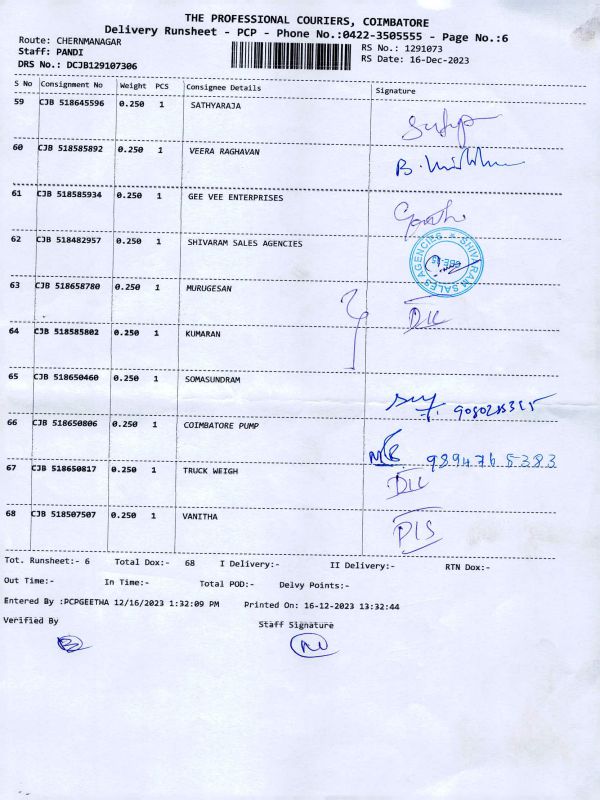 THE PROFESSIONAL COURIERS, COIMBATORE
Delivery Runsheet - PCP - Phone No.:0422-3505555 - Page No.:6
Route: CHERNMANAGAR
RS No.: 1291073
Staff: PANDI
RS Date: 16-Dec-2023
DRS No.: DCJB129107306
S No Consignment No Weight PCS Consignee Details Signature
59 CJB 518645596 0.250 1 SATHYARAJA
60 CJB 518585892 0.250 1 VEERA RAGHAVAN
61 CJB 518585934 0.250 1 GEE VEE ENTERPRISES
62 CJB 518482957 0.250 1 SHIVARAM SALES AGENCIES
SHIVARAM SALES AGENCIES
63 CJB 518658780 0.250 1 MURUGESAN
64 CJB 518585802 0.250 1 KUMARAN
65 CJB 518650460 0.250 1 SOMASUNDRAM
66 CJB 518650806 0.250 1 COIMBATORE PUMP
9894765383
67 CJB 518650817 0.250 1 TRUCK WEIGH
68 CJB 518507507 0.250 1 VANITHA
D/S
Tot. Runsheet:- 6 Total Dox:- 68 I Delivery:- II Delivery:- RTN Dox:-
Out Time:- In Time:- Total POD:- Delvy Points:-
Entered By :PCPGEETHA 12/16/2023 1:32:09 PM Printed On: 16-12-2023 13:32:44
Verified By Staff Signature